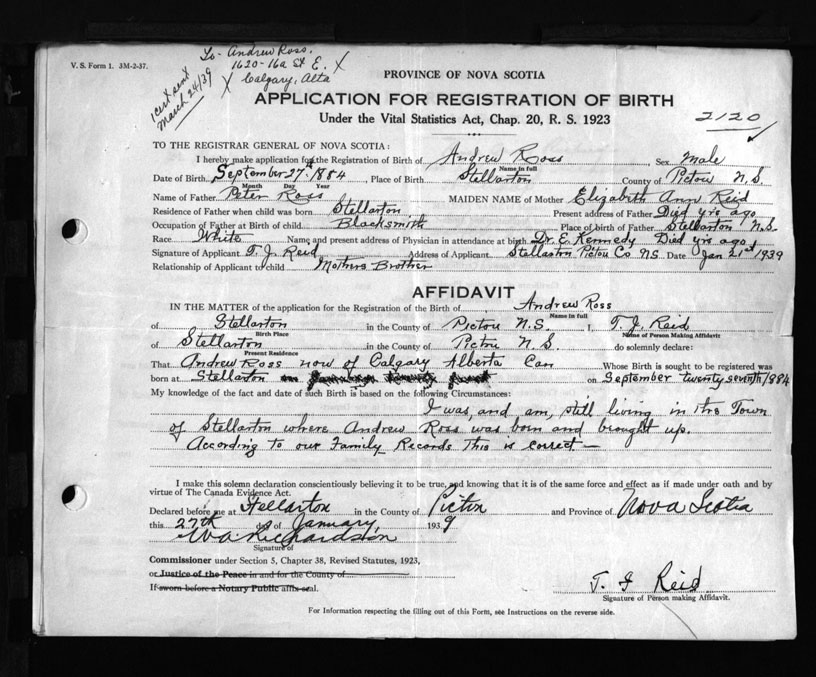 V. S. Form 1. 3M-2-37.
To- Andrew Ross.
1620-16a St E. X
X Calgary, Alta
1 cert sent
March 24/39
PROVINCE OF NOVA SCOTIA
APPLICATION FOR REGISTRATION OF BIRTH
Under the Vital Statistics Act, Chap. 20, R. S. 1923
2120
TO THE REGISTRAR GENERAL OF NOVA SCOTIA:
I hereby make application for the Registration of Birth of Andrew Ross Sex Male
Name in full
Date of Birth September 27th 1884, Place of Birth Stellarton County of Pictou N.S.
Month Day Year
Name of Father Peter Ross MAIDEN NAME of Mother Elizabeth Ann Reid
Residence of Father when child was born Stellarton Present address of Father Died yrs ago
Occupation of Father at Birth of child Blacksmith Place of birth of Father Stellarton N.S.
Race White Name and present address of Physician in attendance at birth Dr. E. Kennedy Died yrs ago
Signature of Applicant T. J. Reid Address of Applicant Stellarton Pictou Co N.S. Date Jan 21st 1939
Relationship of Applicant to child Mothers Brother
AFFIDAVIT
IN THE MATTER of the application for the Registration of the Birth of Andrew Ross
Name in full
of Stellarton in the County of Pictou N.S. I, T. J. Reid
Birth Place Name of Person Making Affidavit
of Stellarton in the County of Pictou N.S. do solemnly declare:
Present Residence
That Andrew Ross now of Calgary Alberta Can Whose Birth is sought to be registered was
born at Stellarton on September twenty seventh/1884
My knowledge of the fact and date of such Birth is based on the following Circumstances:
I was, and am, still living in this Town
of Stellarton where Andrew Ross was born and brought up.
According to our Family Records this is correct.—
I make this solemn declaration conscientiously believing it to be true, and knowing that it is of the same force and effect as if made under oath and by
virtue of The Canada Evidence Act.
Declared before me at Stellarton in the County of Pictou and Province of Nova Scotia
this 27th day of January, 1939
Richardson
Signature of
Commissioner under Section 5, Chapter 38, Revised Statutes, 1923,
or Justice of the Peace in and for the County of
If sworn before a Notary Public affix seal.
T. J. Reid
Signature of Person making Affidavit.
For Information respecting the filling out of this Form, see Instructions on the reverse side.